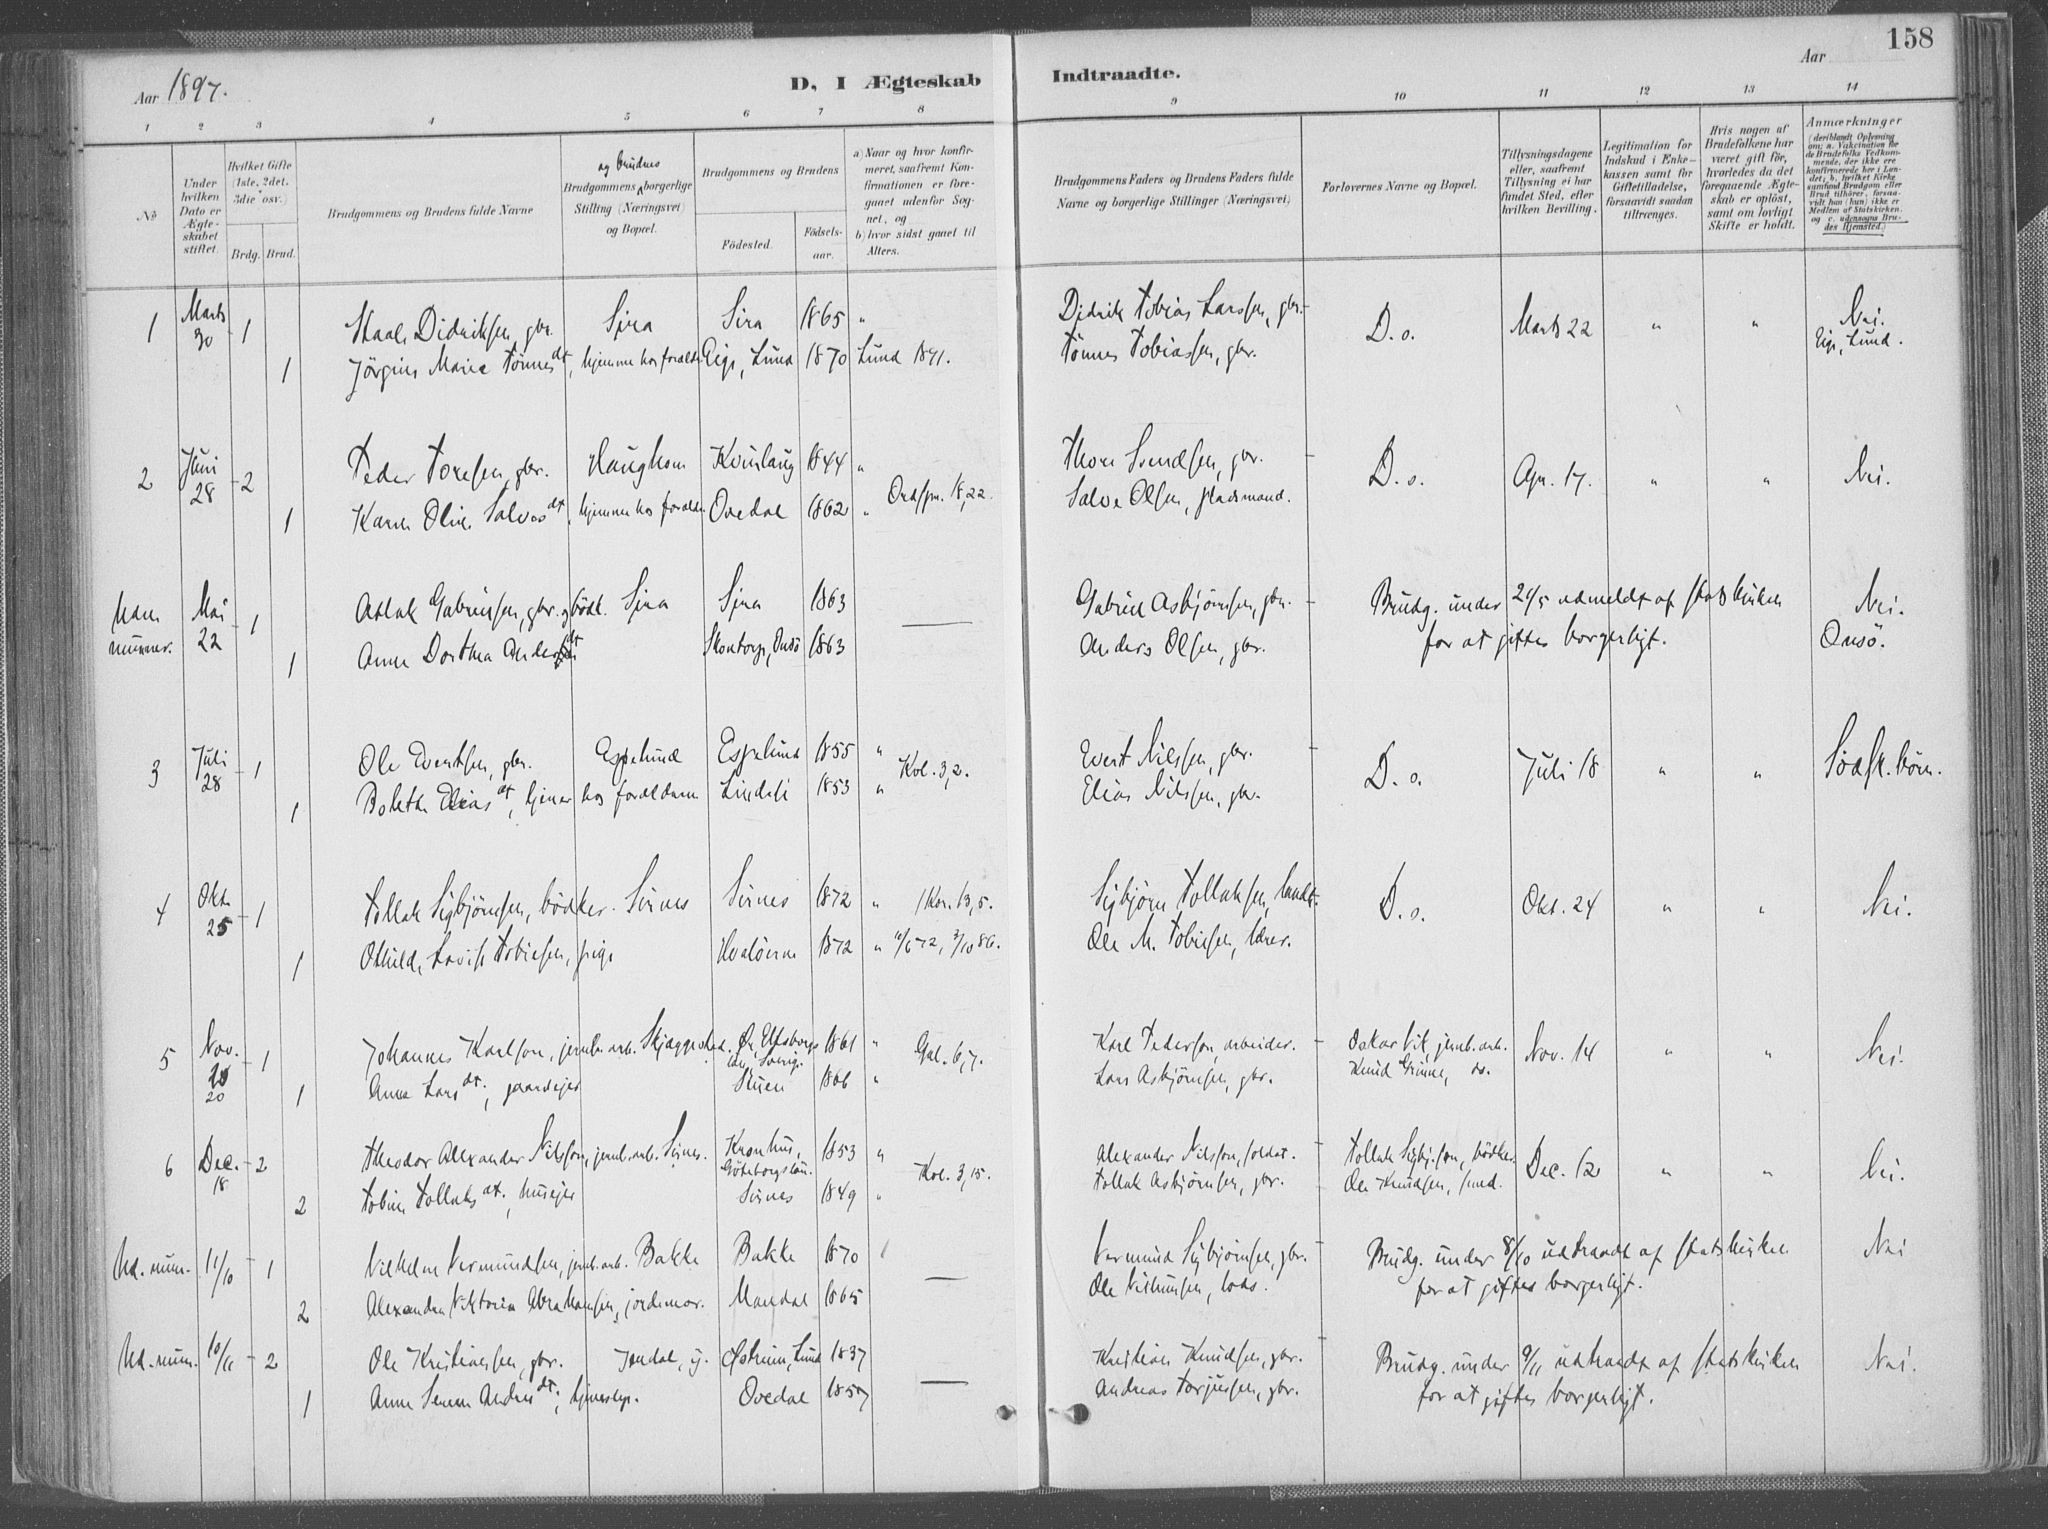 158
Aar 1897.
D, I Ægteskab Indtraadte.
Aar
1 2 3 4 5 6 7 8 9 10 11 12 13 14
No
Under hvilken Dato er Ægteskabet stiftet.
Hvilket Gifte (1ste, 2det, 3die osv.)
Brdg. Brud.
Brudgommens og Brudens fulde Navne
og Brudens
Brudgommens borgerlige Stilling (Næringsvei) og Bopæl.
Brudgommens og Brudens
Födested.
Födselsaar.
a) Naar og hvor konfirmeret, saafremt Konfirmationen er foregaaet udenfor Sognet, og
b) hvor sidst gaaet til Alters.
Brudgommens Faders og Brudens Faders fulde Navne og borgerlige Stillinger (Næringsvei)
Forlovernes Navne og Bopæl.
Tillysningsdagene eller, saafremt Tillysning ei har fundet Sted, efter hvilken Bevilling.
Legitimation for Indskud i Enkekassen samt for Giftetilladelse, forsaavidt saadan tiltrænges.
Hvis nogen af Brudefolkene har været gift för, hvorledes da det foregaaende Ægteskab er oplöst, samt om lovligt Skifte er holdt.
Anmærkninger (deriblandt Oplysning om: a. Vaccination for de Brudefolks Vedkommende, der ikke ere konfirmerede her i Landet; b. hvilket Kirkesamfund Brudgom eller Brud tilhörer, forsaavidt han (hun) ikke er Medlem af Statskirken. og c. udensogns Brudes Hjemsted.)
1 Marts 30 1 Staale Didriksen, gbr. Sira Sira 1865 " Didrik Tobias Larssen, gbr. D. o. Marts 22 " " Nei.
1 Jörgine Marie Tönnesdt, hjemme hos foræld. Eige, Lund 1870 Lund 1891. Tönnes Tobiassen, gbr. Eige, Lund.
2 Juni 28 2 Peder Toresen, gbr. Haughom Kvinlaug 1844 " Ordspr. 18,22. Thore Svendsen, gbr. D. o. Apr. 17. " " Nei.
1 Karen Oline Salvesdt, hjemme hos foræld. Ovedal 1862 " Salve Olsen, pladsmand.
Uden nummer. Mai 22 1 Atlak Gabrielsen, gbr. og bödk. Sira Sira 1863 Gabriel Asbjörnsen, gbr. Brudg. under 21/5 udmeldt af statskirken Nei.
1 Anne Dorthea Andersdt Skontorp, Onsö 1863 Anders Olsen, gbr. for at giftes borgerligt. Onsö.
3 Juli 28 1 Ole Evertsen, gbr. Espelund Espelund 1855 " Kol. 3,2. Evert Nilssen, gbr. D. o. Juli 18 " " Södsk. börn.
1 Bolette Eliasdt, hjemme hos forældrene Lindeli 1853 " Elias Nilssen, gbr.
4 Okt. 25 1 Tollak Sigbjörnsen, bödker. Sirnes Sirnes 1872 " 1 Kor. 13,5. Sigbjörn Tollaksen, landh. D. o. Okt. 24 " " Nei.
1 Othilde Lovise Tobiesen, pige Hvalöerne 1872 " 10/6 72, 3/10 86. Ole M. Tobiesen, lærer.
5 Nov. 20 1 Johannes Karlson, jernb.arb. Skjeggestad. Elfsborgs län, Sverig. 1861 " Gal. 6,7. Karl Pederson, arbeider. Oskar Vik, jernb.arb. Nov. 14 " " Nei.
1 Anna Larsdt, gaardejer Stuen 1866 " Lars Asbjörnsen, gbr. Knud Grinne, do.
6 Dec. 18 2 Theodor Alexander Nilsson, jernb.arb. Sirnes. Kronhus, Göteborgslän. 1853 " Kol. 3,15. Alexander Nilsson, soldat. Tollak Sigbj.son, bödker Dec. 12 " " Nei.
2 Tobine Tollaksdt, husejer Sirnes 1849 " Tollak Asbjörnsen, gbr. Ole Knudsen, smed.
Ud. num. 11/10 1 Vilhelm Vermundsen, jernb.arb. Bakke Bakke 1870 Vermund Sigbjörnsen, gbr. Brudg. under 8/10 udtraadt af statskirken Nei
2 Alexandra Viktoria Abrahamsen, jordemor. Mandal 1865 Ole Vilhumsen, lods. for at giftes borgerligt.
Ud. num. 10/11 2 Ole Kristiansen, gbr. Jendal, y. Östrum, Lund 1837 Kristian Knudsen, gbr. Brudg. under 9/11 udtraadt af statskirken Nei.
1 Anne Serene Andreasdt, hjemme. Ovedal 1857 Andreas Torjussen, gbr. for at giftes borgerligt.